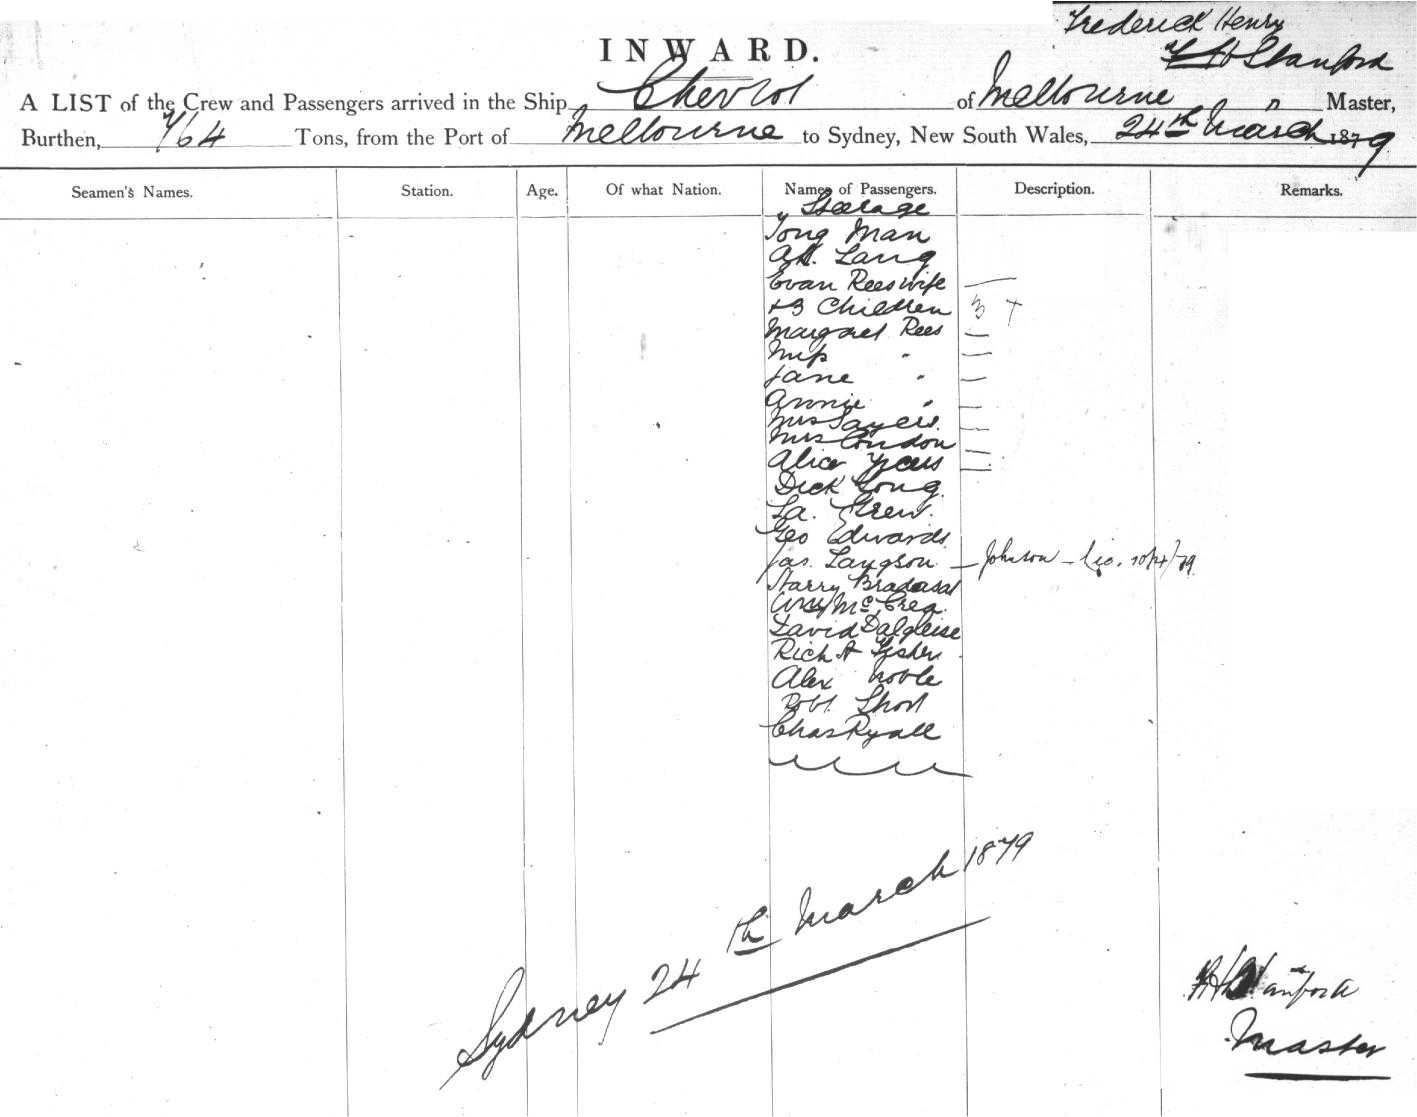 Frederick Henry
INWARD.
F H Stanford
A LIST of the Crew and Passengers arrived in the Ship Cheviot of Melbourne Master,
Burthen, 764 Tons, from the Port of Melbourne to Sydney, New South Wales, 24th March 1879
Seamen's Names. Station. Age. Of what Nation. Names of Passengers. Description. Remarks.
Steerage
Tong Man
Ah. Lang
Evan Rees wife
+3 Children 3
Margaret Rees
Miss "
Jane "
Annie "
Mrs Sayers
Mrs Condon
Alice
Dick Long
La.
Geo Edwards
Jas. Langson Johnson
Harry
McCrea
David Dalgleise
Rich A Fisher
Alex Noble
Robt. Short
Chas Ryall
Sydney 24th March 1879
F H Stanford
Master